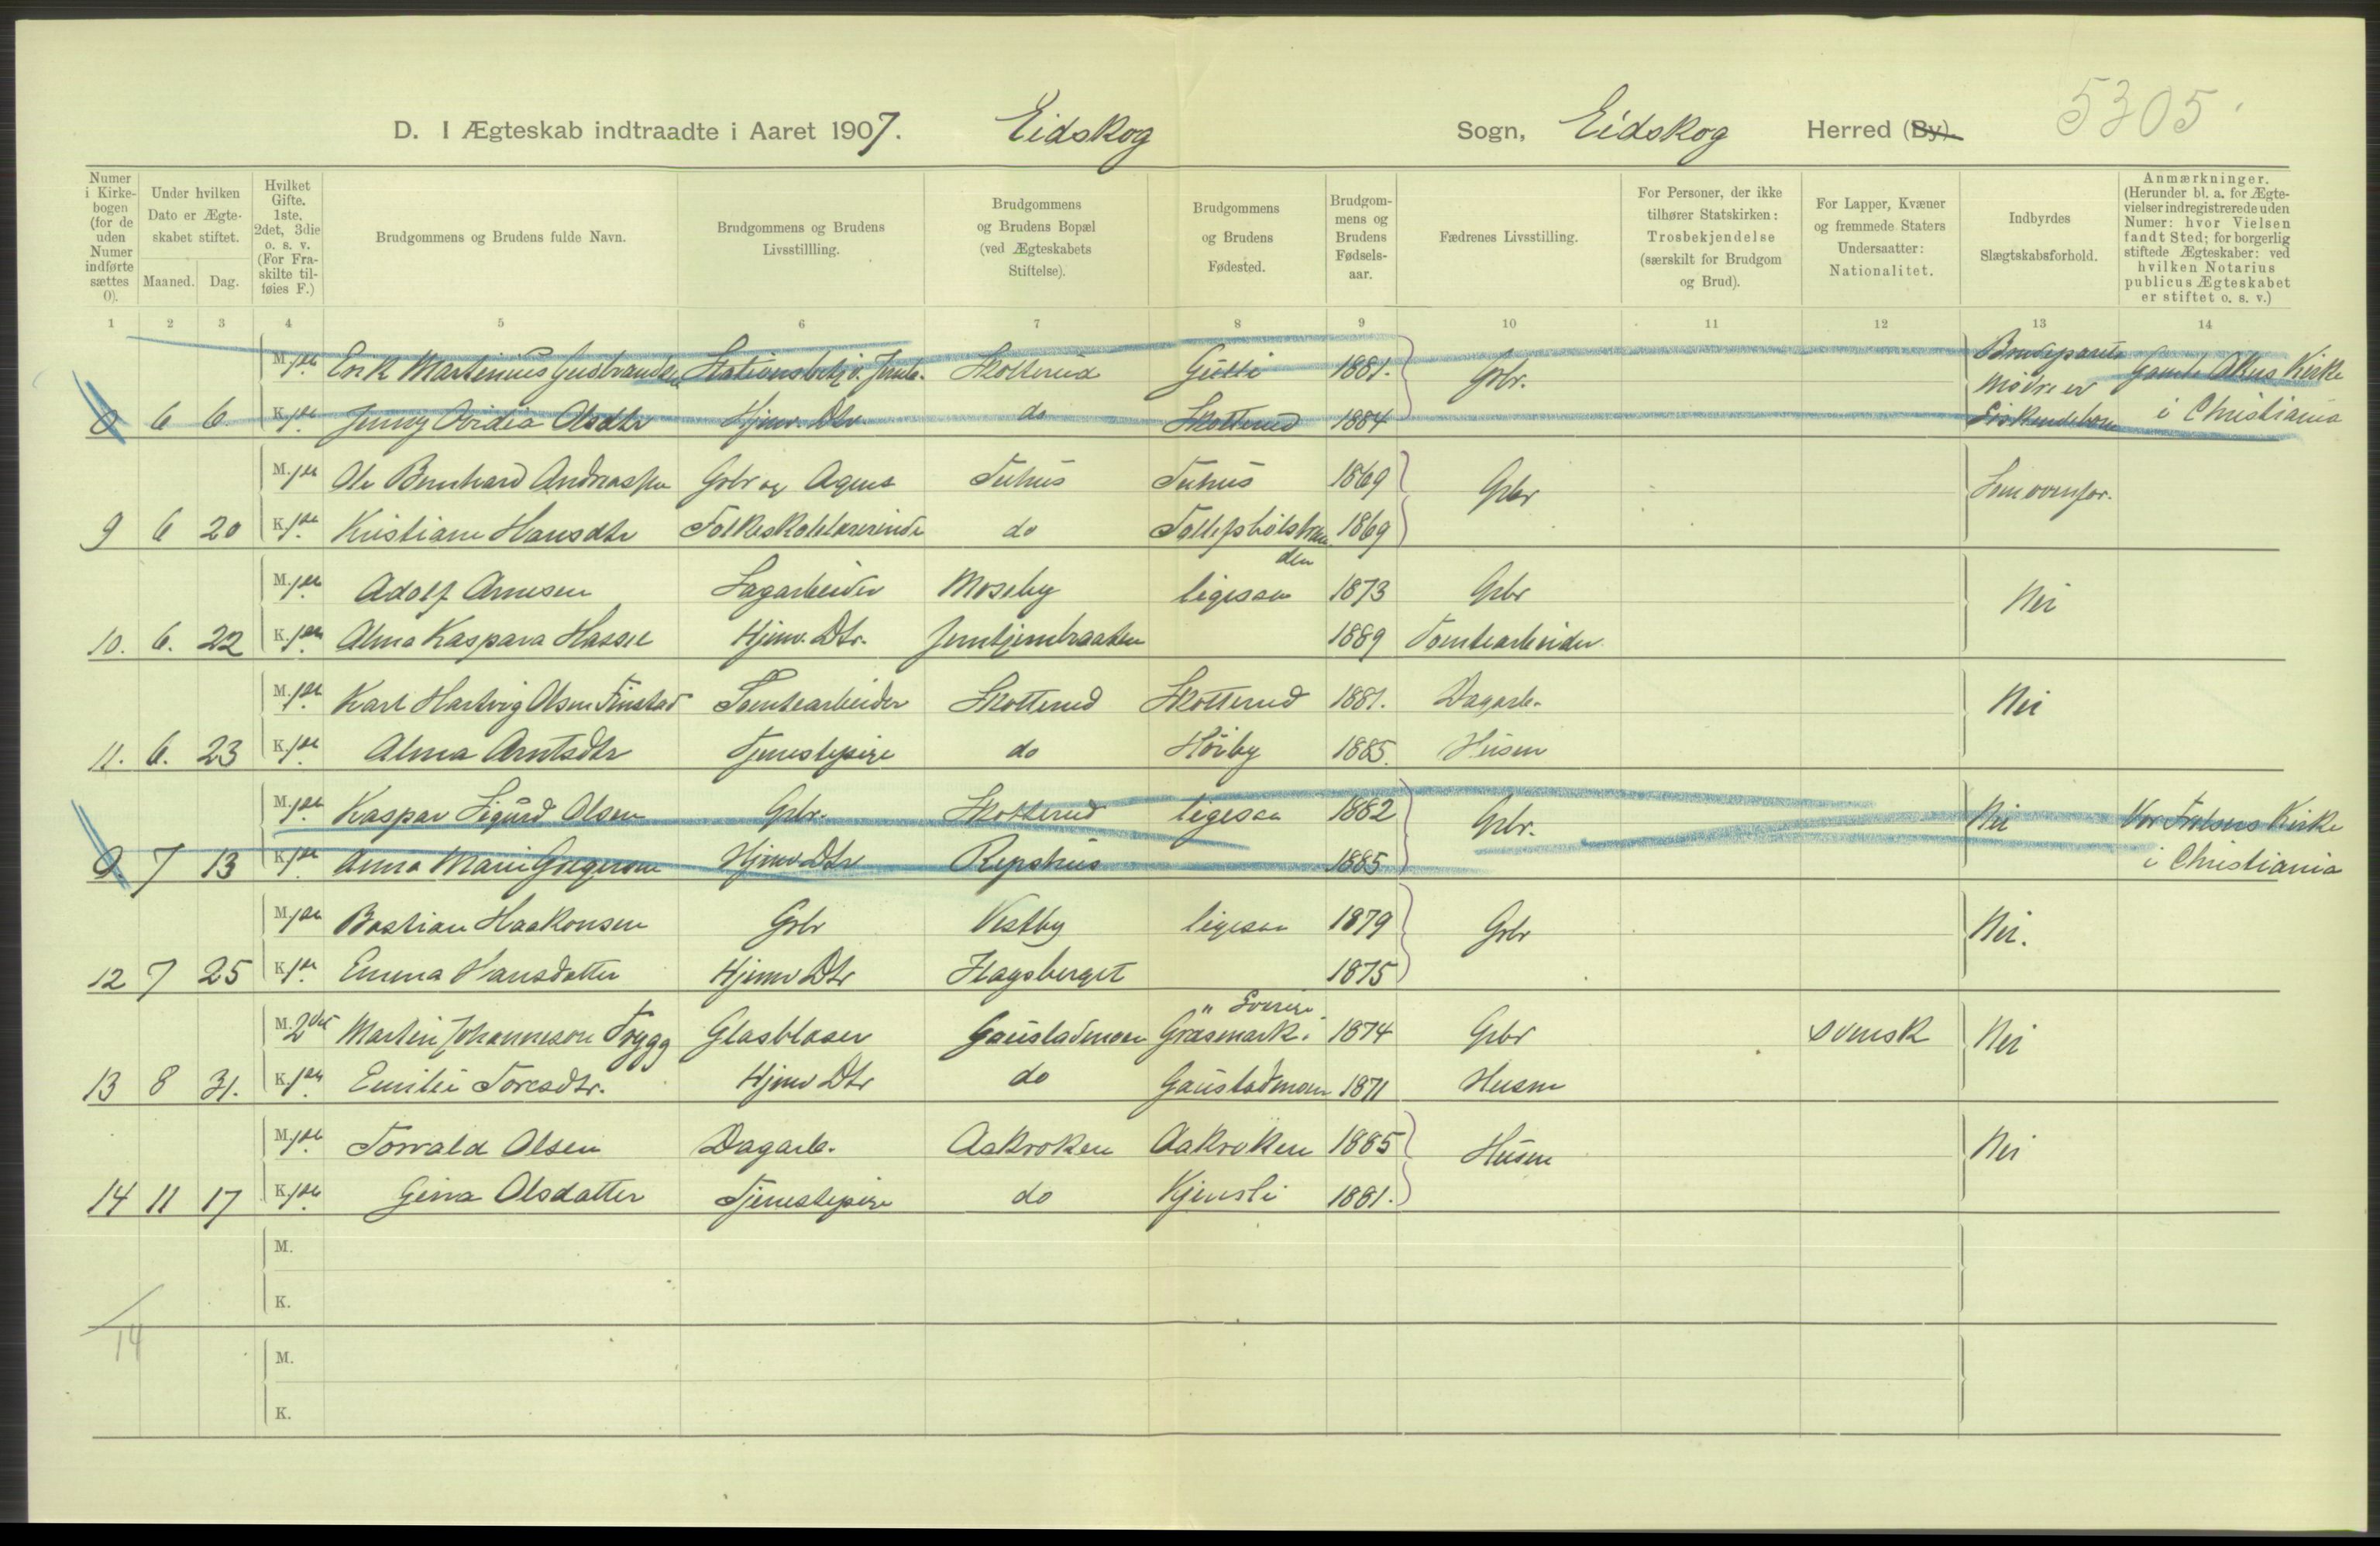 5305
D. I Ægteskab indtraadte i Aaret 1907. Eidskog Sogn, Eidskog Herred (By).
Numer i Kirkebogen (for de uden Numer indførte sættes 0).
Under hvilken Dato er Ægteskabet stiftet.
Maaned. Dag.
Hvilket Gifte. 1ste, 2det, 3die o. s. v. (For Fraskilte tilføies F.)
Brudgommens og Brudens fulde Navn.
Brudgommens og Brudens Livsstillling.
Brudgommens og Brudens Bopæl (ved Ægteskabets Stiftelse).
Brudgommens og Brudens Fødested.
Brudgommens og Brudens Fødselsaar.
Fædrenes Livsstilling.
For Personer, der ikke tilhører Statskirken: Trosbekjendelse (særskilt for Brudgom og Brud).
For Lapper, Kvæner og fremmede Staters Undersaatter: Nationalitet.
Indbyrdes Slægtskabsforhold.
Anmærkninger. (Herunder bl. a. for Ægtevielser indregistrerede uden Numer: hvor Vielsen fandt Sted; for borgerlig stiftede Ægteskaber: ved hvilken Notarius publicus Ægteskabet er stiftet o. s. v.)
1 2 3 4 5 6 7 8 9 10 11 12 13 14
M. 1ste Erik Martinius Gudbrandsen Stationsbetj. v. Jernb. Skotterud Gulli 1881. Grbr. Brudeparets Mødre er Gamle Akers Kirke
0 6 6 K. 1ste Jenny Ovidia Olsdtr Hjmv. Dtr. do Skotterud 1884 Søskendebørn i Christiania
M. 1ste Ole Bernhard Andreassen Grbr og Agent Tuhus Tuhus 1869 Grbr Som ovenfor.
9 6 20 K. 1ste Kristiane Hansdtr Folkeskolelærerinde do 1869
M. 1ste Adolf Arnesen Sagarbeider Moseby ligesaa 1873 Grbr Nei
10. 6. 22 K. 1ste Alma Kaspara Hassel Hjmv. Dtr. 1889 Tomtearbeider.
M. 1ste Karl Hartvig Olsen Finstad Tomtearbeider Skotterud Skotterud 1881. Dagarb. Nei
11. 6. 23 K. 1ste Alma Arntsdtr Tjenestepige do Høiby 1885. Husm
M. 1ste Kaspar Sigurd Olsen Grbr. Skotterud ligesaa 1882 Grbr. Nei Vor Frelsers Kirke
0 7 13 K. 1ste Anna Marie Gregersen Hjmv Dtr Repshus 1885 i Christiania
M. 1ste Bastian Haakonsen Grbr Vestby ligesaa 1879 Grbr Nei.
12 7 25 K. 1ste Emma Hansdatter Hjmv Dtr Hagsberget 1875
M. 2det Martin Johanneson Trygg Glasblaser Gaustadmoen Græsmark i Sverige 1874 Grbr svensk Nei
13 8 31. K. 1ste Emilie Toresdtr. Hjmv Dtr do Gaustadmoen 1871 Husm
M. 1ste Torvald Olsen Dagarb. Aakroken Aakroken 1885 Husm Nei
14 11 17 K. 1ste Gina Olsdatter Tjenestepige do Kjensli 1881.
M.
K.
14
M.
K.